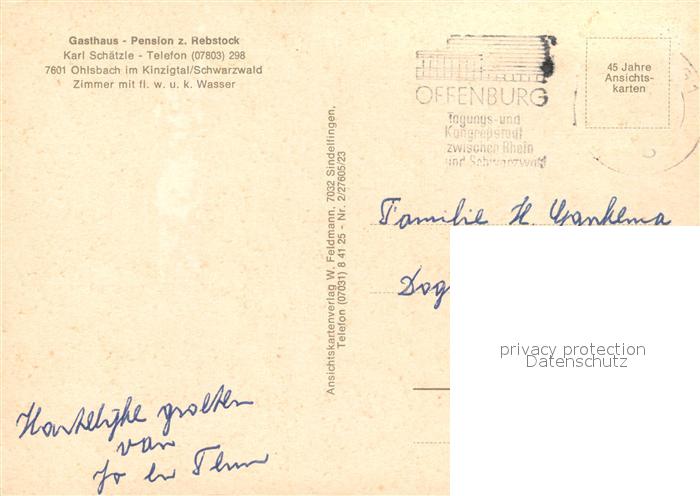 Gasthaus - Pension z. Rebstock
Karl Schätzle - Telefon (07803) 298
7601 Ohlsbach im Kinzigtal/Schwarzwald
Zimmer mit fl. w. u. k. Wasser
Ansichtskartenverlag W. Feldmann, 7032 Sindelfingen,
Telefon (07031) 8 41 25 - Nr. 2/27605/23
OFFENBURG
Tagungs-und
Kongreßstadt
zwischen Rhein
und Schwarzwald
45 Jahre
Ansichts-
karten
Familie H.
privacy protection
Datenschutz
Hartelijke groeten
van
Jo en